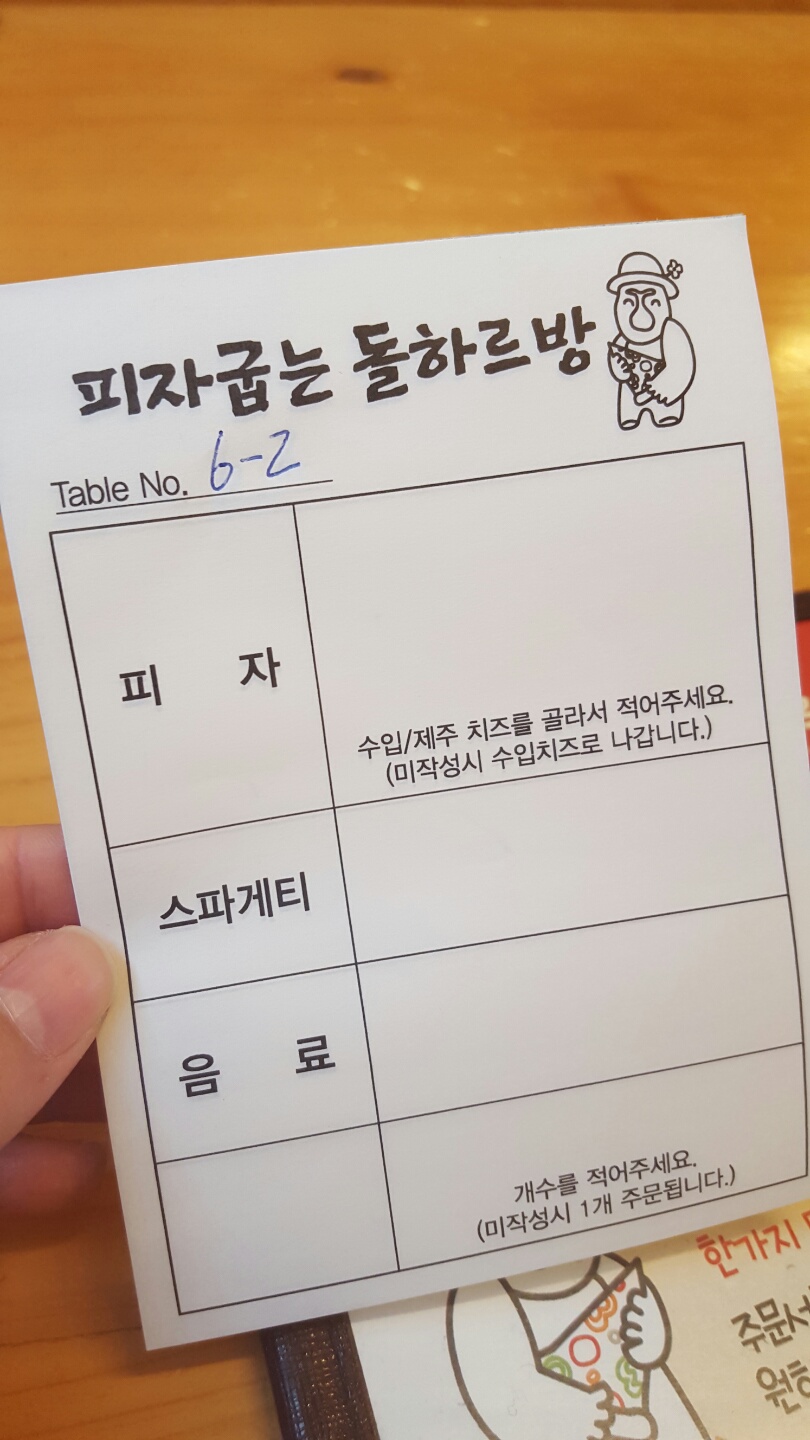 피자굽는 돌하르방
Table No. 6-2
피 자
수입/제주 치즈를 골라서 적어주세요.
(미작성시 수입치즈로 나갑니다.)
스파게티
음 료
개수를 적어주세요.
(미작성시 1개 주문됩니다.)
한가지